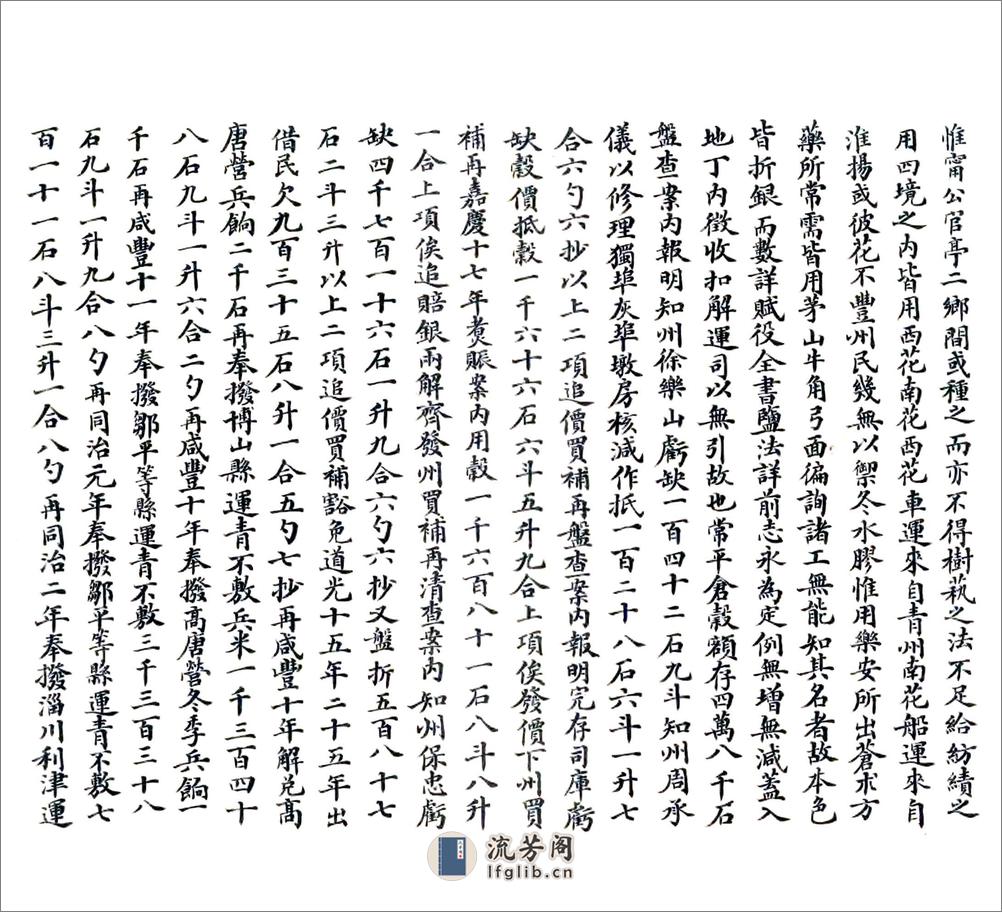 惟甯公官亭二鄉間或種之而亦不得樹蓺之法不足給紡績之
用四境之内皆用西花南花西花車運來自青州南花船運來自
淮揚或彼花不豐州民幾無以禦冬水膠惟用樂安所出蒼朮方
藥所常需皆用茅山牛角弓面徧詢諸工無能知其名者故本色
皆折銀而數詳賦役全書鹽法詳前志永為定例無增無減蓋入
地丁内徵收扣解運司以無引故也常平倉穀額存四萬八千石
盤查案内報明知州徐樂山虧缺一百四十二石九斗知州周承
儀以修理獨埠灰埠墩房核減作抵一百二十八石六斗一升七
合六勺六抄以上二項追價買補再盤查案内報明完存司庫虧
缺穀價抵穀一千六十六石六斗五升九合上項俟發價下州買
補再嘉慶十七年煑賑案内用穀一千六百八十一石八斗八升
一合上項俟追賠銀兩解齊發州買補再清查案内知州保忠虧
缺四千七百一十六石一升九合六勺六抄又盤折五百八十七
石二斗三升以上二項追價買補豁免道光十五年二十五年出
借民欠九百三十五石八升一合五勺七抄再咸豐十年解兑髙
唐營兵餉二千石再奉撥博山縣運青不敷兵米一千三百四十
八石九斗一升六合二勺再咸豐十年奉撥髙唐營冬季兵餉一
千石再咸豐十一年奉撥鄒平等縣運青不敷三千三百三十八
石九斗一升九合八勺再同治元年奉撥鄒平等縣運青不敷七
百一十一石八斗三升一合八勺再同治二年奉撥淄川利津運
流芳阁
lfglib.cn